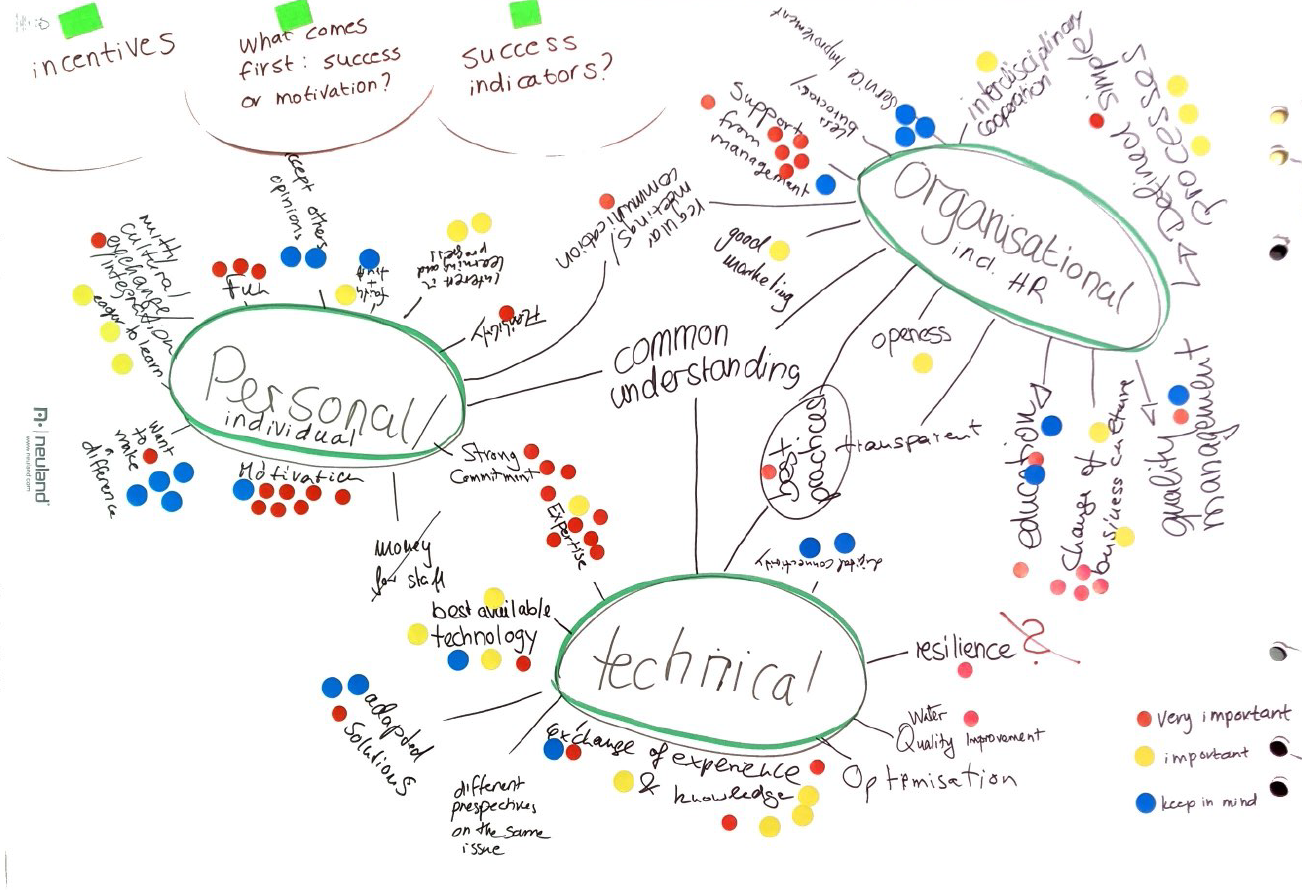 incentives
What comes
first: success
or motivation?
success
indicators?
service Improvement
less
burocracy
Support
from
management
interdisciplinary
cooperation
simple
Defined
processes
Organisational
incl. HR
regular
meetings/
communication
good
marketing
openess
transparent
best
practices
education
change of
business culture
quality
management
common
understanding
accept others
opinions
multy
cultural
exchange
/integration
eager to learn
Fun
trust
+
faith
Interest in
learning and
progress
flexibility
Personal/
individual
want
to
make
a
difference
Motivation
Strong
Commitment
Expertise
money
for staff
digital connectivity
best available
technology
technical
adapted
solutions
different
prespectives
on the same
issue
exchange of experience
& knowledge
resilience ?
Water
Quality Improvement
Optimisation
Very important
important
keep in mind
neuland
www.neuland.com